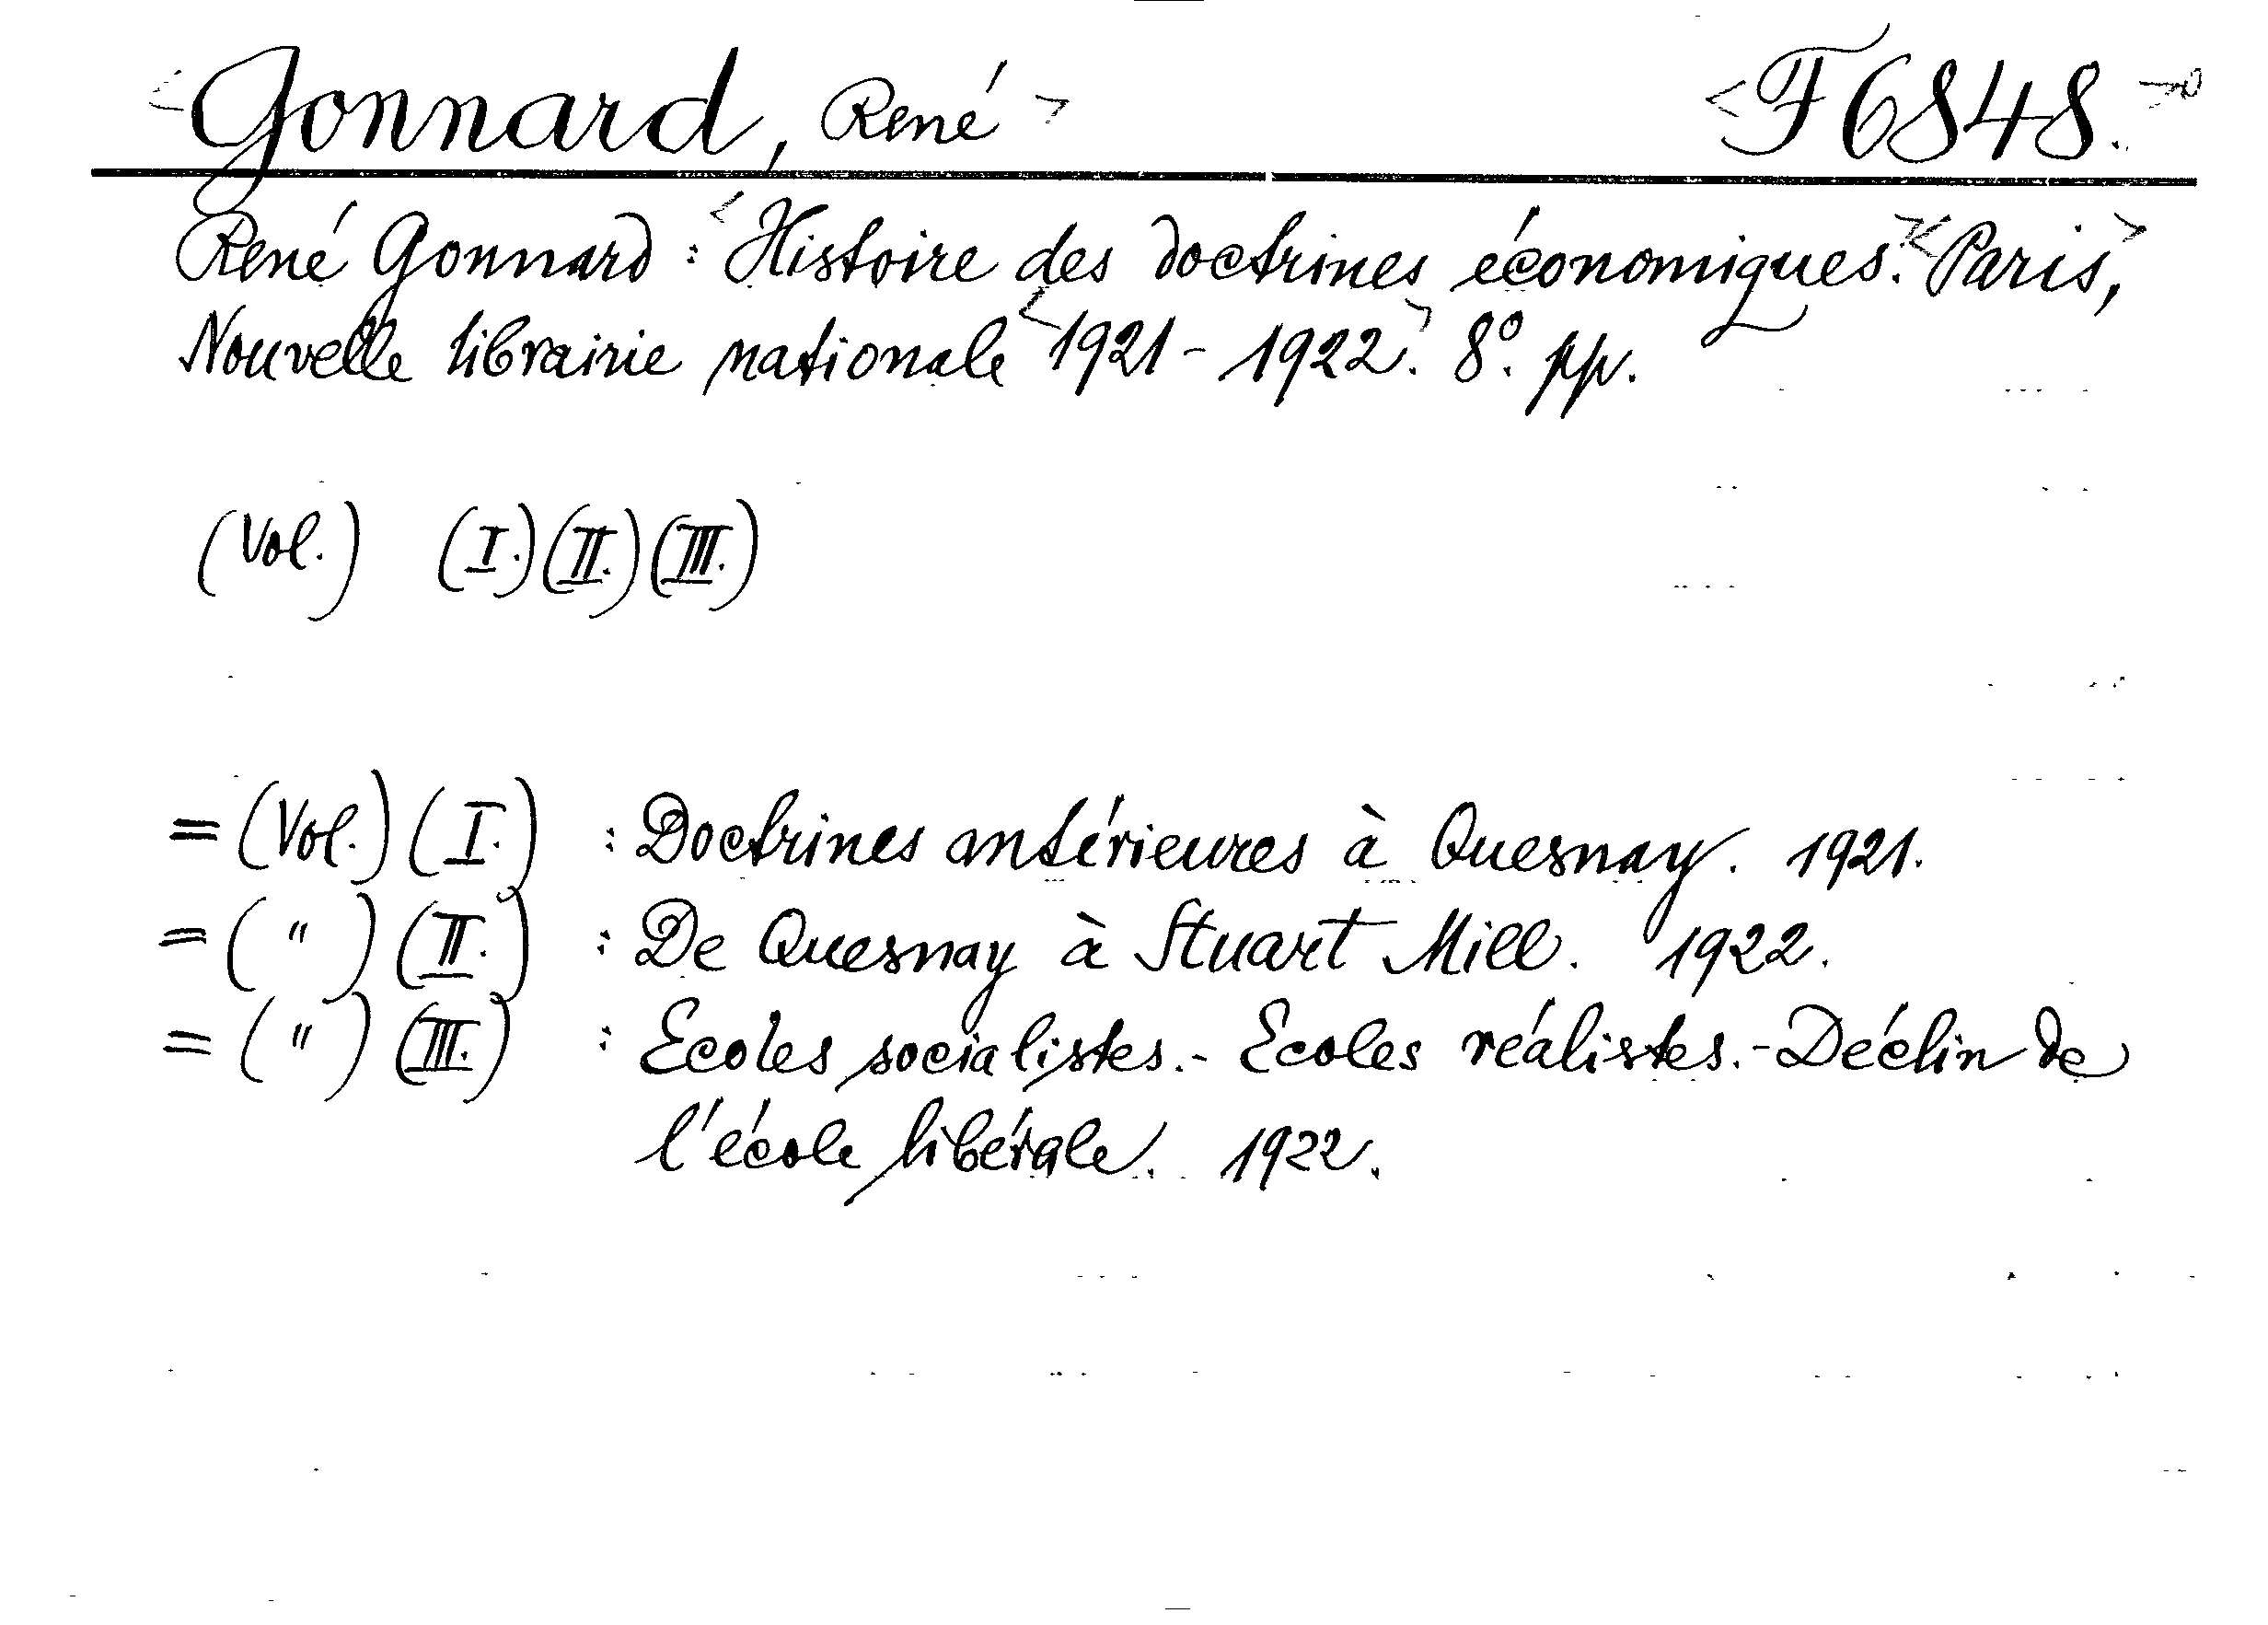 <Gonnard, René> <F 6848.>
René Gonnard: <Histoire des doctrines économiques.> <Paris,>
Nouvelle librairie nationale <1921-1922.> 8º. pp.
(Vol.) (I.)(II.)(III.)
= (Vol.) (I.) : Doctrines antérieures à Quesnay. 1921.
= ( " ) (II.) : De Quesnay à Stuart Mill. 1922.
= ( " ) (III.) : Ecoles socialistes.- Ecoles réalistes.- Déclin de
l'école libérale. 1922.